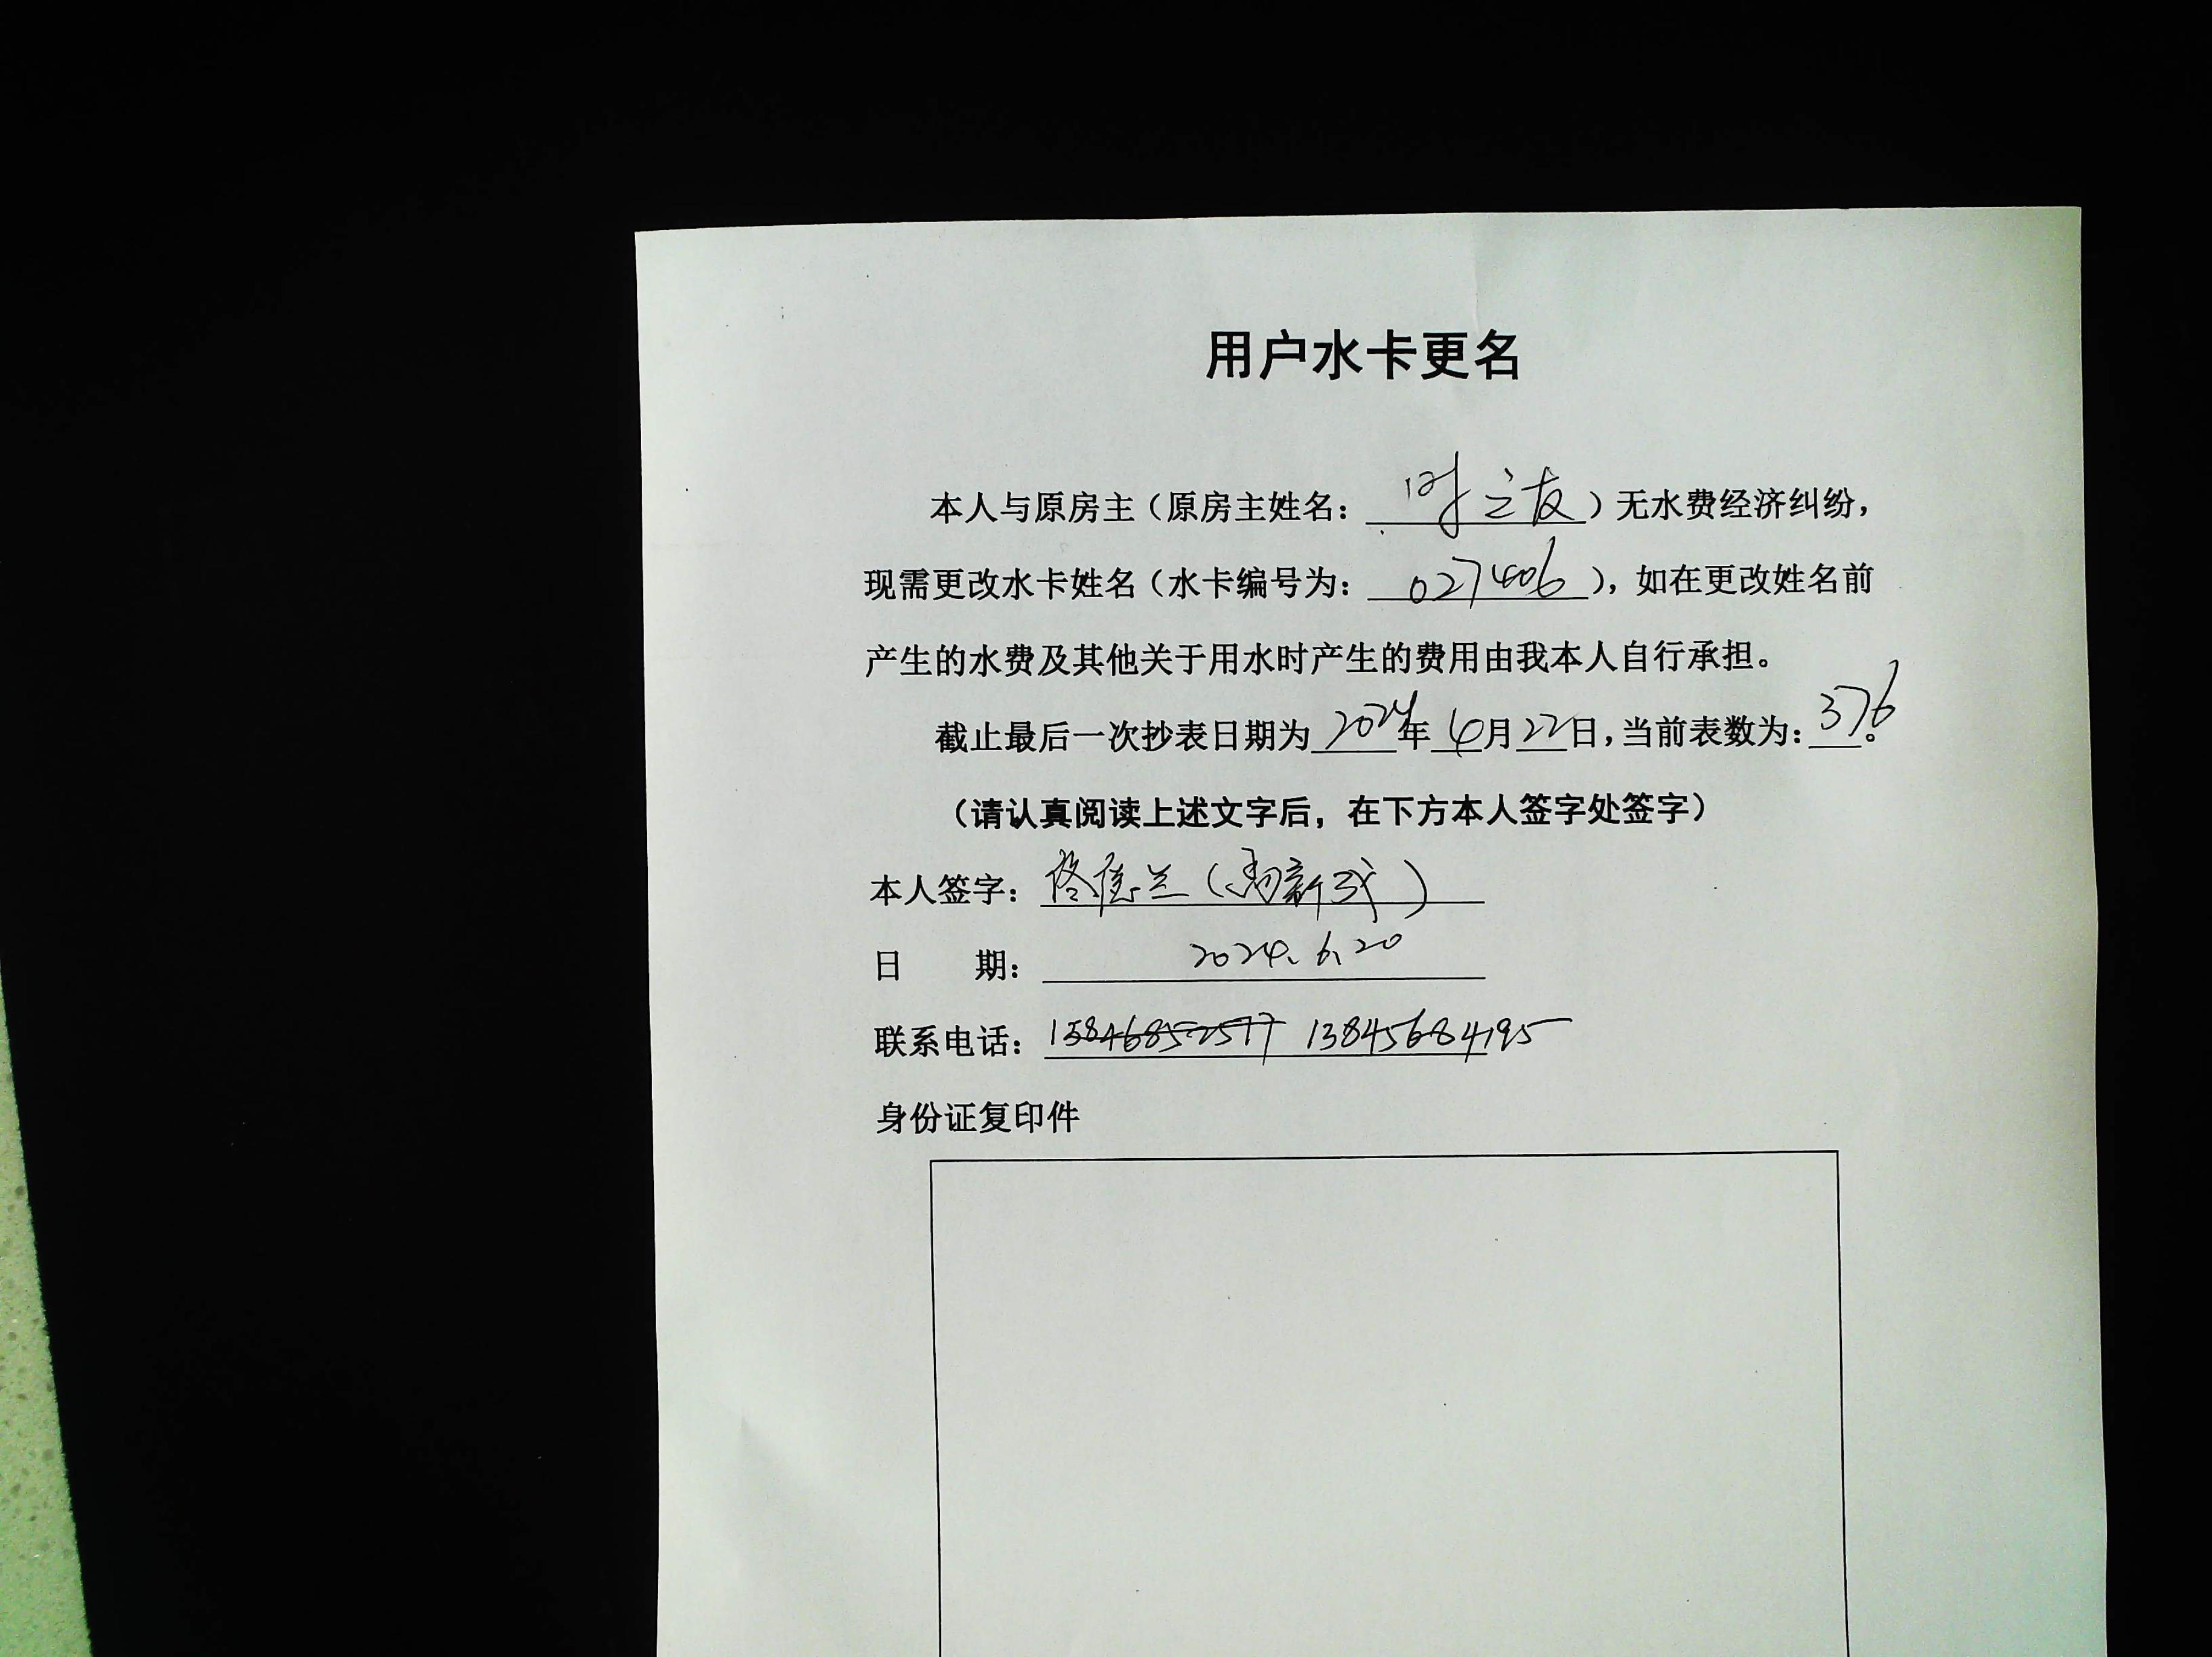 用户水卡更名
本人与原房主（原房主姓名：时之友）无水费经济纠纷，
现需更改水卡姓名（水卡编号为：027406），如在更改姓名前
产生的水费及其他关于用水时产生的费用由我本人自行承担。
截止最后一次抄表日期为2024年4月22日，当前表数为：376。
（请认真阅读上述文字后，在下方本人签字处签字）
本人签字：佟 兰（ 新 ）
日 期：2024.6.20
联系电话：13845684195
身份证复印件